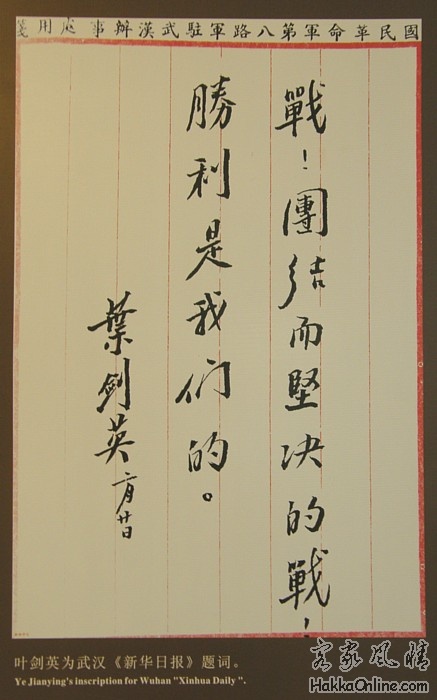 國民革命軍第八路軍駐武漢辦事處用箋
戰!團结而堅决的戰!
勝利是我們的。
葉劍英 二月廿日
叶剑英为武汉《新华日报》题词。
Ye Jianying's inscription for Wuhan "Xinhua Daily".
客家风情
HakkaOnline.com